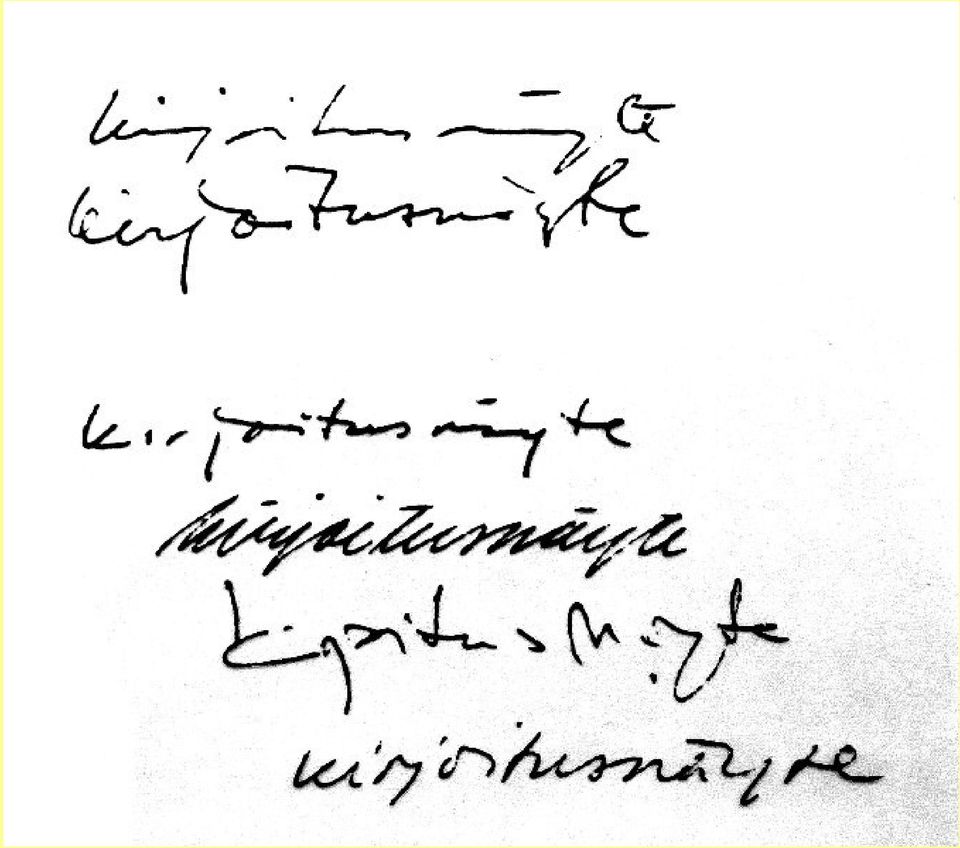 kirjoitusnäyte
kirjoitusnäyte
kirjoitusnäyte
kirjoitusnäyte
kirjoitusnäyte
kirjoitusnäyte